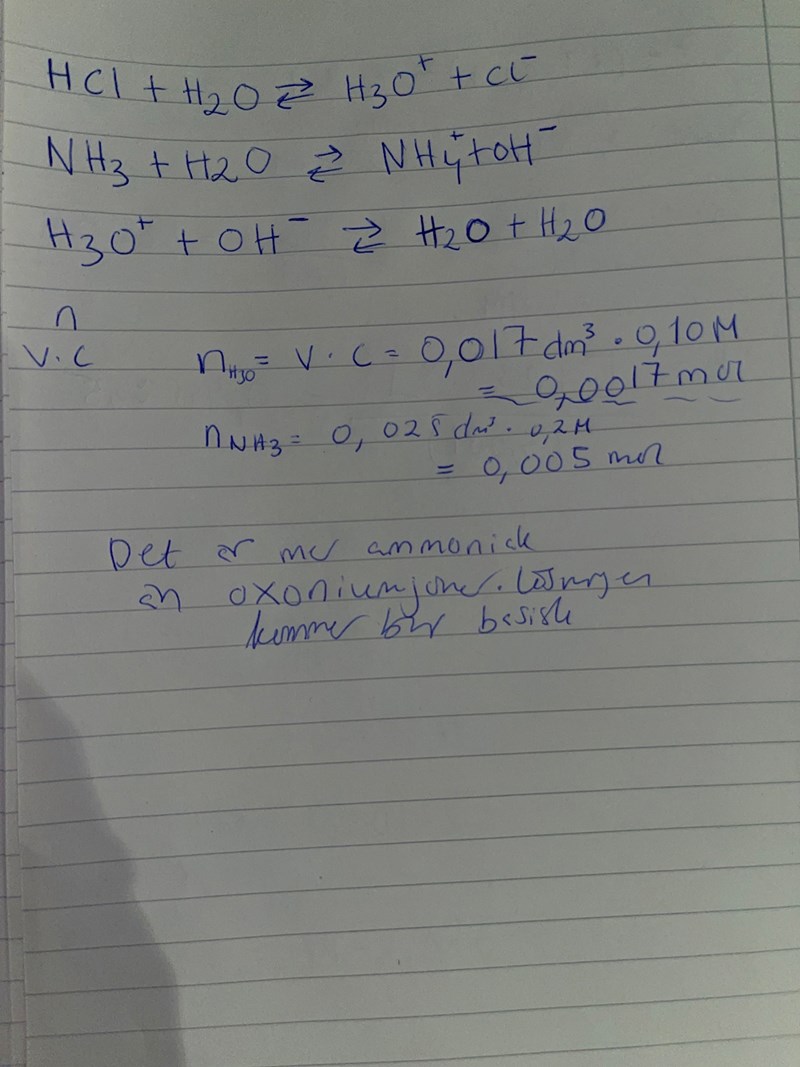 HCl + H₂O ⇄ H₃O⁺ + Cl⁻
NH₃ + H₂O ⇄ NH₄⁺ + OH⁻
H₃O⁺ + OH⁻ ⇄ H₂O + H₂O
n
V·C
n_H₃O = V · C = 0,017 dm³ · 0,10 M
= 0,0017 mol
n_NH₃ = 0,025 dm³ · 0,2 M
= 0,005 mol
Det är mer ammoniak
än oxoniumjoner. Lösningen
kommer blir basisk